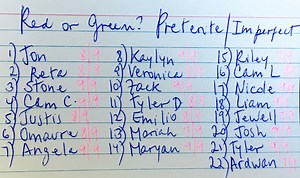 Red or Green? Preterite/Imperfect
1) Jon 8/9
2) Reta 8/9
3) Stone 9/9
4) Cam C. 9/9
5) Justis 8/9
6) Omaura 8/9
7) Angela 9/9
8) Kaylyn
9) Veronica
10) Zack
11) Tyler D
12) Emilio
13) Mariah
14) Maryan
15) Riley
16) Cam L
17) Nicole
18) Liam
19) Jewell
20) Josh
21) Tyler
22) Ardwan